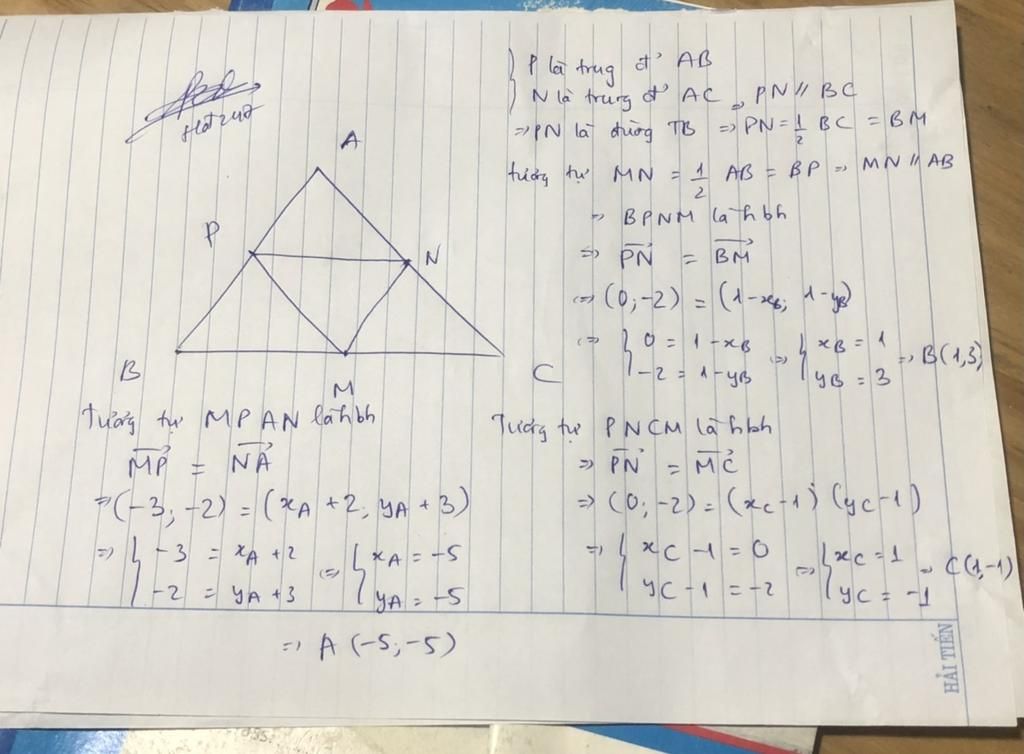 A
P
N
B
M
C
P là trug đ' AB
N là trung đ' AC => PN // BC
=> PN là đường TB => PN = 1/2 BC = BM
tương tự MN = 1/2 AB = BP => MN // AB
=> BPNM là hbh
=> \overrightarrow{PN} = \overrightarrow{BM}
<=> (0; -2) = (1-x_B; 1-y_B)
<=> { 0 = 1-x_B -2 = 1-y_B <=> { x_B = 1 y_B = 3 => B(1,3)
Tương tự MPAN là hbh
\overrightarrow{MP} = \overrightarrow{NA}
=> (-3; -2) = (x_A + 2; y_A + 3)
=> { -3 = x_A + 2 -2 = y_A + 3 <=> { x_A = -5 y_A = -5
=> A (-5; -5)
Tương tự PNCM là hbh
=> \overrightarrow{PN} = \overrightarrow{MC}
=> (0; -2) = (x_C - 1) (y_C - 1)
=> { x_C - 1 = 0 y_C - 1 = -2 <=> { x_C = 1 y_C = -1 => C(1; -1)
HẢI TIẾN